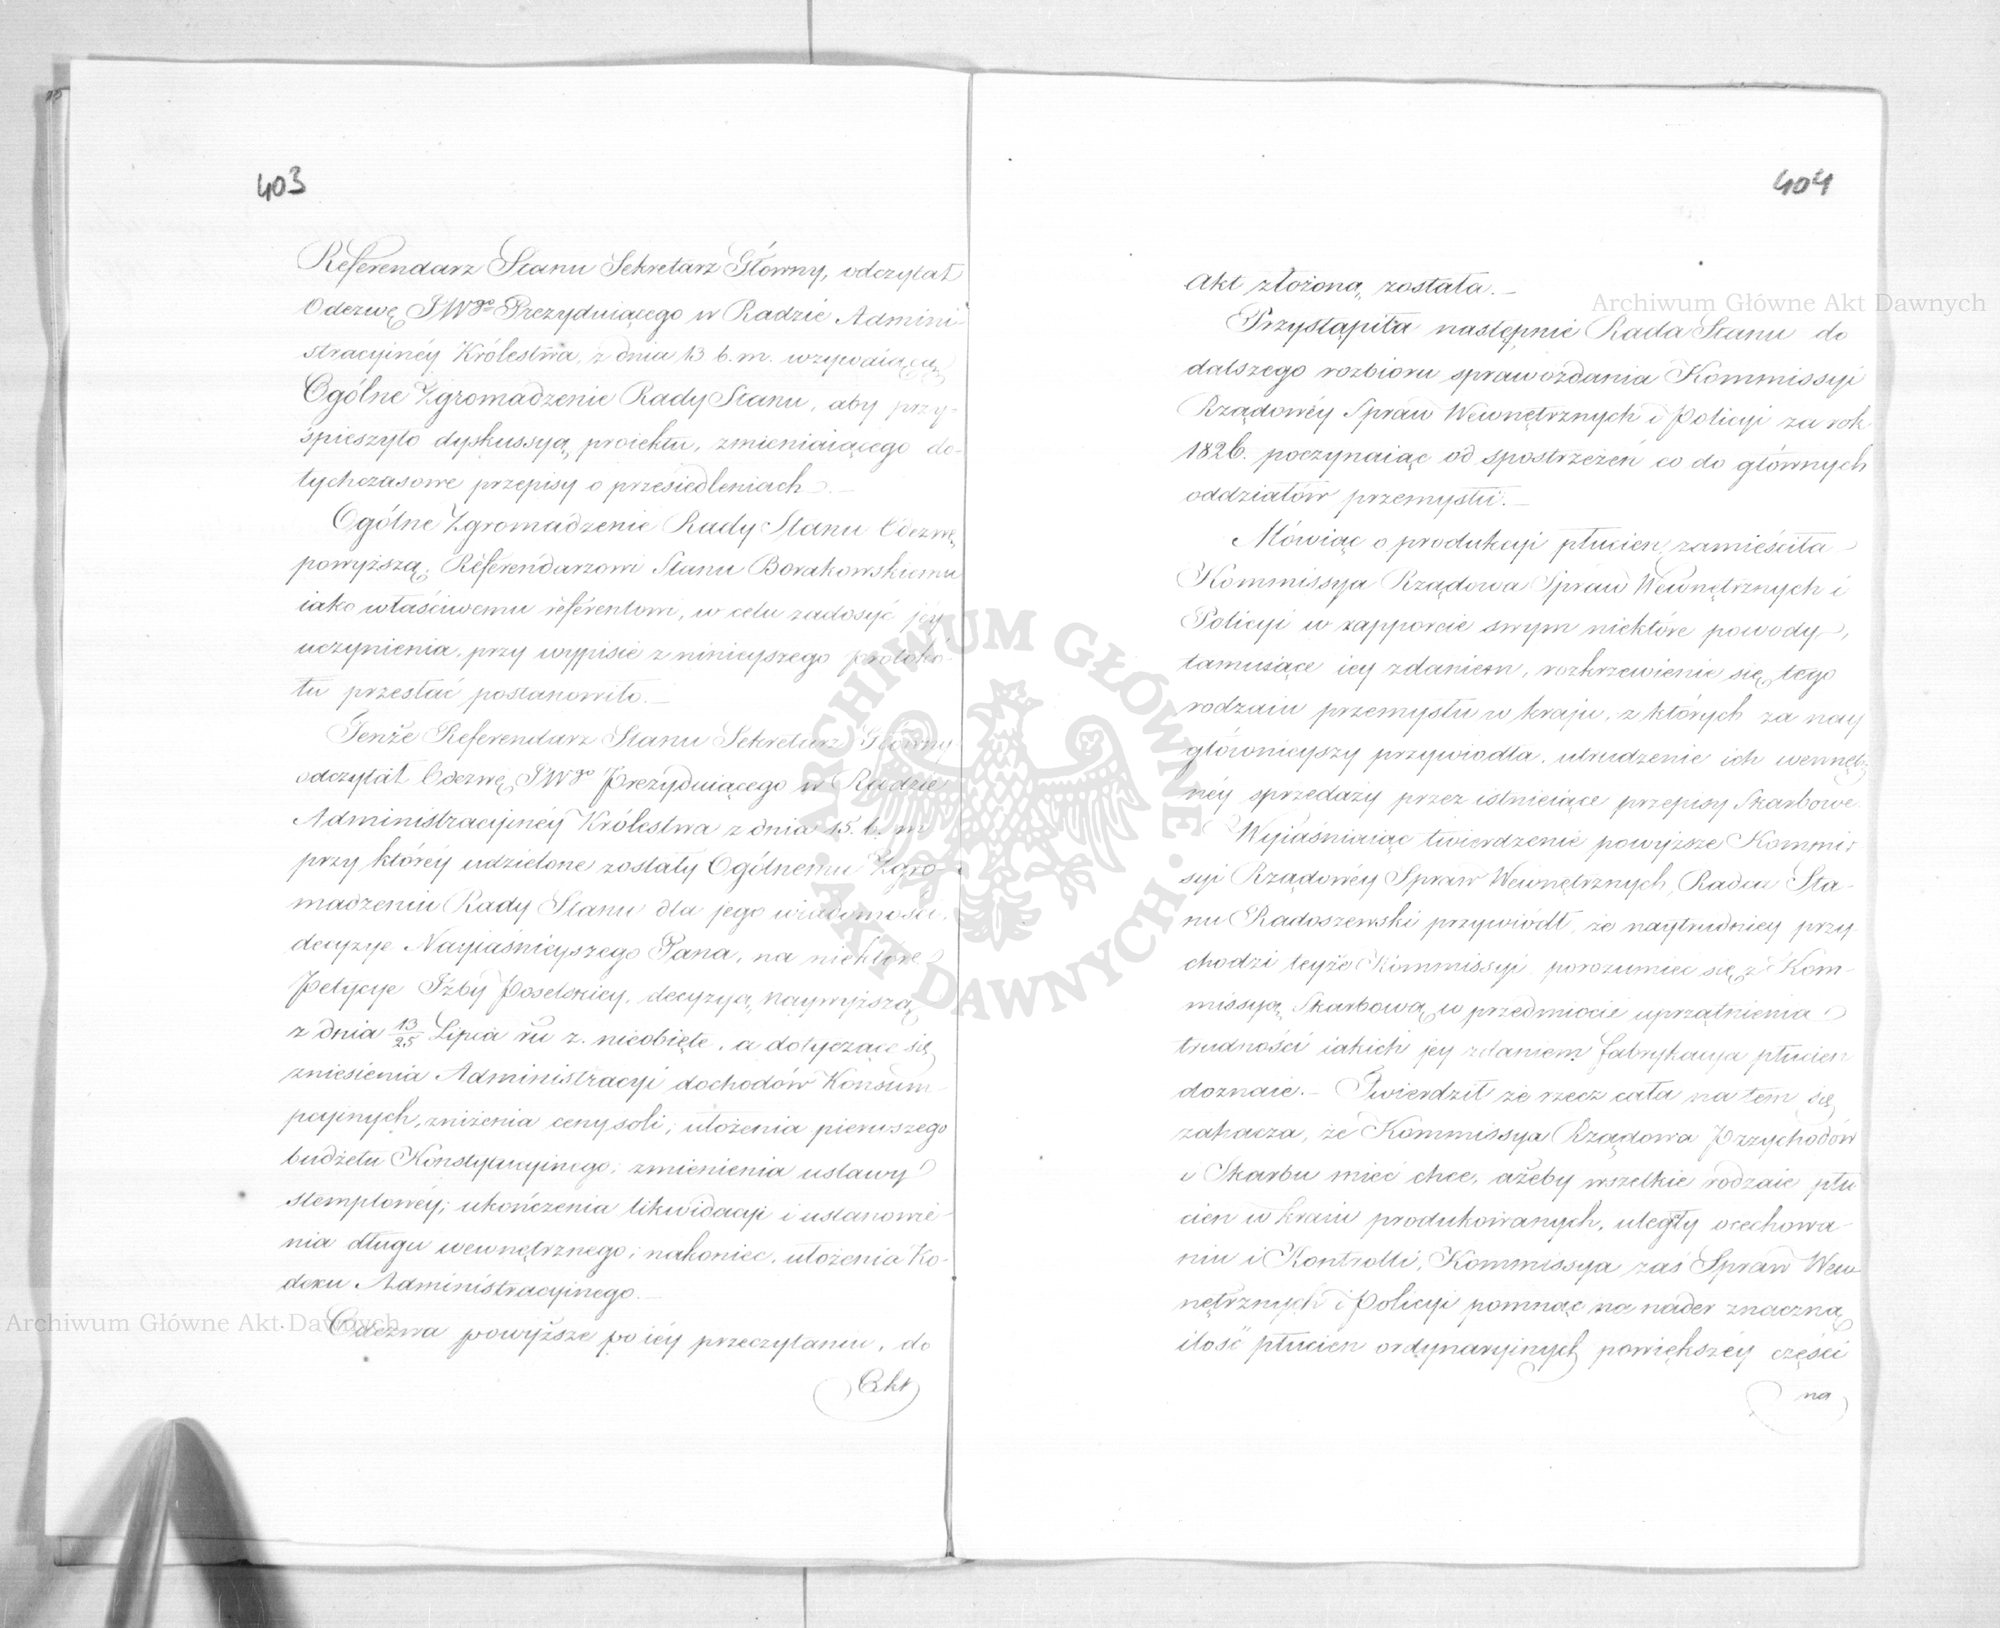 403
Referendarz Stanu Sekretarz Główny, odczytał
Odezwę JWgo Prezyduiącego w Radzie Admini-
stracyinéy Królestwa, z dnia 13 b. m. wzywaiącą
Ogólne Zgromadzenie Rady Stanu, aby przy-
śpieszyło dyskussyą proiektu, zmieniaiącego do-
tychczasowe przepisy o przesiedleniach. —
Ogólne Zgromadzenie Rady Stanu Odezwę
powyższą, Referendarzowi Stanu Borakowskiemu
iako właściwemu referentowi, w celu zadosyć jéy
uczynienia, przy wypisie z ninieyszego protokó-
łu przesłać postanowiło. —
Tenże Referendarz Stanu Sekretarz Główny
odczytał Odezwę JWgo Prezyduiącego w Radzie
Administracyinéy Królestwa z dnia 15. b. m
przy któréy udzielone zostały Ogólnemu Zgro-
madzeniu Rady Stanu dla jego wiadomości,
decyzye Nayiaśnieyszego Pana, na niektóre
Petycye Izby Poselskiey, decyzyą naywyższą
z dnia 13/25 Lipca ru z. nieobięte, a dotyczące się
zniesienia Administracyi dochodów Konsum-
pcyinych, zniżenia ceny soli; ułożenia pierwszego
budżetu Konstytucyinego; zmienienia ustawy
stemplowéy; ukończenia likwidacyi i ustanowie-
nia długu wewnętrznego; nakoniec, ułożenia Ko-
dexu Administracyinego. —
Odezwa powyższe po iéy przeczytaniu, do
Akt
404
Akt złożoną została. —
Przystąpiła następnie Rada Stanu do
dalszego rozbioru sprawozdania Kommissyi
Rządowéy Spraw Wewnętrznych i Policyi za rok
1826. poczynaiąc od spostrzeżeń co do głównych
oddziałów przemysłu. —
Mówiąc o produkcyi płucien, zamieściła
Kommissya Rządowa Spraw Wewnętrznych i
Policyi w rapporcie swym niektóre powody,
tamuiące iey zdaniem, rozkrzewienie się tego
rodzaiu przemysłu w kraju, z których za nay
głównieyszy przywiodła, utrudzenie ich wewnętrz-
néy sprzedaży przez istnieiące przepisy Skarbowe.
Wyiaśniaiąc twierdzenie powyższe Kommis-
syi Rządowéy Spraw Wewnętrznych, Radca Sta-
nu Radoszewski przywiódł, że naytrudniey przy-
chodzi teyże Kommissyi, porozumieć się z Kom-
missyą Skarbową w przedmiocie uprzątnienia
trudności iakich jey zdaniem fabrykacya płucien
doznaie. — Twierdził że rzecz cała na tem się
zahacza, że Kommissya Rządowa Przychodów
i Skarbu mieć chce, ażeby wszelkie rodzaie płu
cien w kraiu produkowanych, uległy ocechowa-
niu i Kontrolli, Kommissya zaś Spraw Wew-
nętrznych i Policyi pomnąc na nader znaczną
ilość płucien ordynaryinych powiększéy części
na
Archiwum Główne Akt Dawnych
Archiwum Główne Akt Dawnych
ARCHIWUM GŁÓWNE · AKT DAWNYCH ·